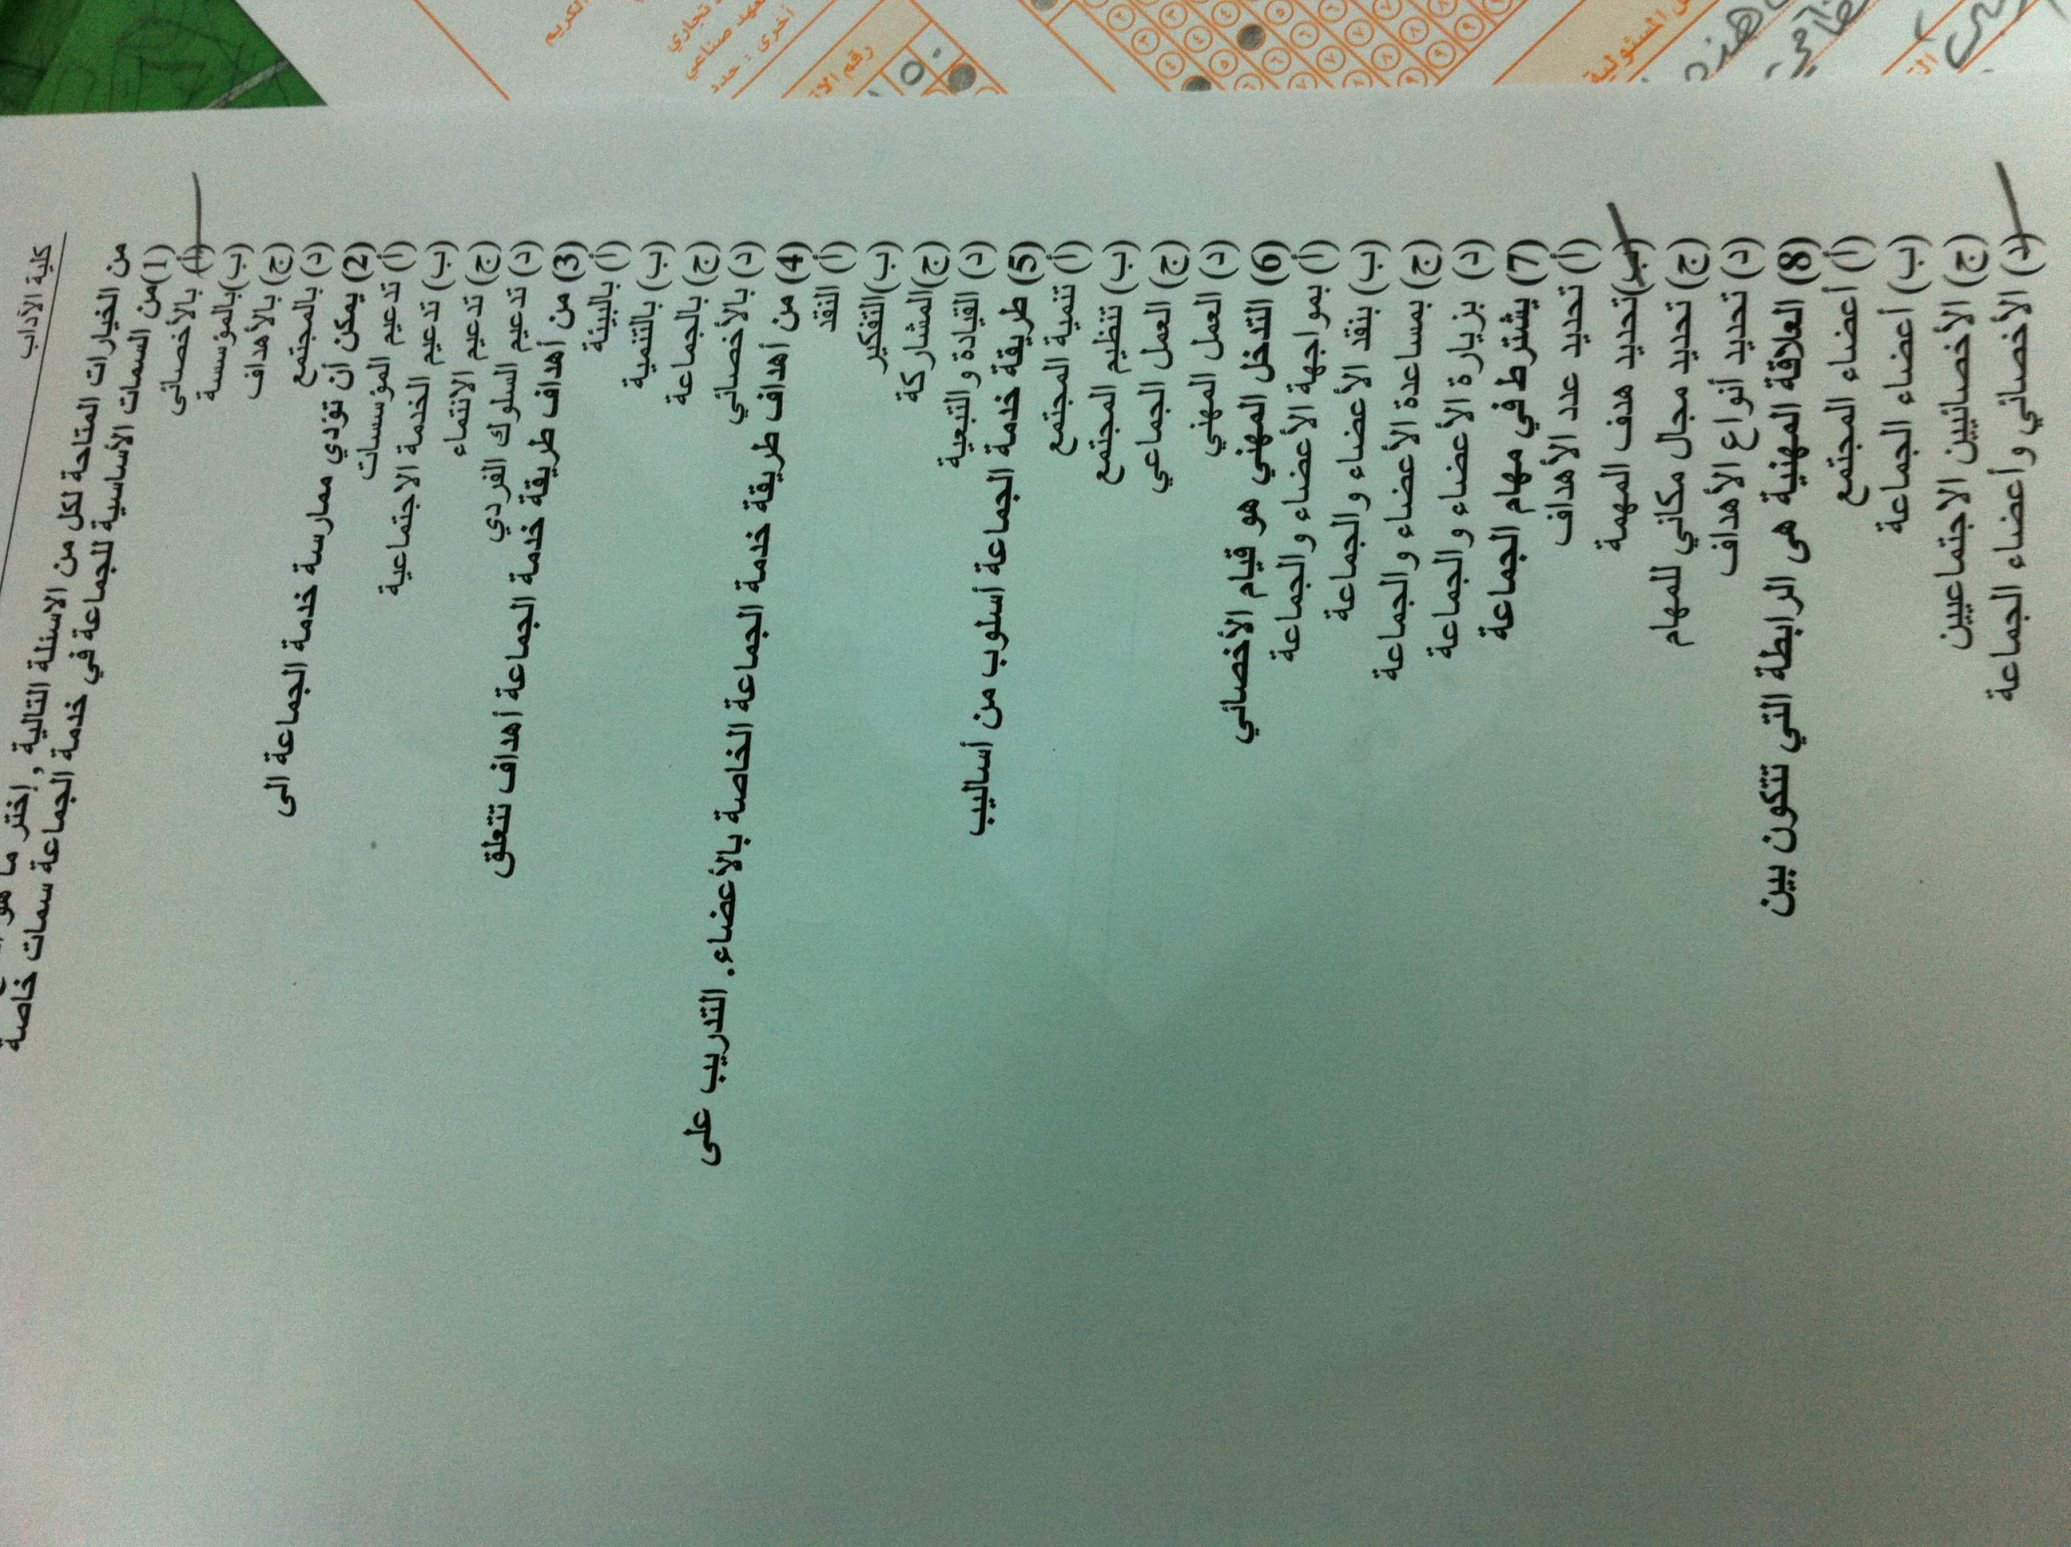 كلية الآداب
من الخيارات المتاحة لكل من الاسئلة التالية, إختر ما هو
(1)من السمات الأساسية للجماعة في خدمة الجماعة سمات خاصة
(أ) بالأخصائى
(ب)بالمؤسسة
(ج) بالأهداف
(د) بالمجتمع
(2) يمكن أن تؤدي ممارسة خدمة الجماعة الى
(أ) تدعيم المؤسسات
(ب) تدعيم الخدمة الاجتماعية
(ج) تدعيم الانتماء
(د) تدعيم السلوك الفردي
(3) من أهداف طريقة خدمة الجماعة أهداف تتعلق
(أ) بالبيئة
(ب) بالتنمية
(ج) بالجماعة
(د) بالأخصائي
(4) من أهداف طريقة خدمة الجماعة الخاصة بالأعضاء. التدريب على
(أ) النقد
(ب)التفكير
(ج)المشاركة
(د) القيادة والتبعية
(5) طريقة خدمة الجماعة أسلوب من أساليب
(أ) تنمية المجتمع
(ب) تنظيم المجتمع
(ج) العمل الجماعي
(د) العمل المهني
(6) التدخل المهني هو قيام الأخصائي
(أ) بمواجهة الأعضاء والجماعة
(ب) بنقد الأعضاء والجماعة
(ج) بمساعدة الأعضاء والجماعة
(د) بزيارة الأعضاء والجماعة
(7) يشترط في مهام الجماعة
(أ) تحديد عدد الأهداف
(ب)تحديد هدف المهمة
(ج) تحديد مجال مكاني للمهام
(د) تحديد أنواع الأهداف
(8) العلاقة المهنية هى الرابطة التي تتكون بين
(أ) أعضاء المجتمع
(ب) أعضاء الجماعة
(ج) الأخصائيين الاجتماعيين
(د) الأخصائي وأعضاء الجماعة
الكريم
تجاري
صناعي
أخرى : حدد
رقم
المسئولية
هند